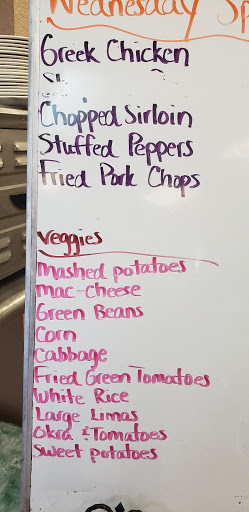 Wednesday Sp
Greek Chicken
Chopped Sirloin
Stuffed Peppers
Fried Pork Chops
Veggies
Mashed potatoes
Mac-Cheese
Green Beans
Corn
Cabbage
Fried Green Tomatoes
White Rice
Large Limas
Okra & Tomatoes
Sweet potatoes